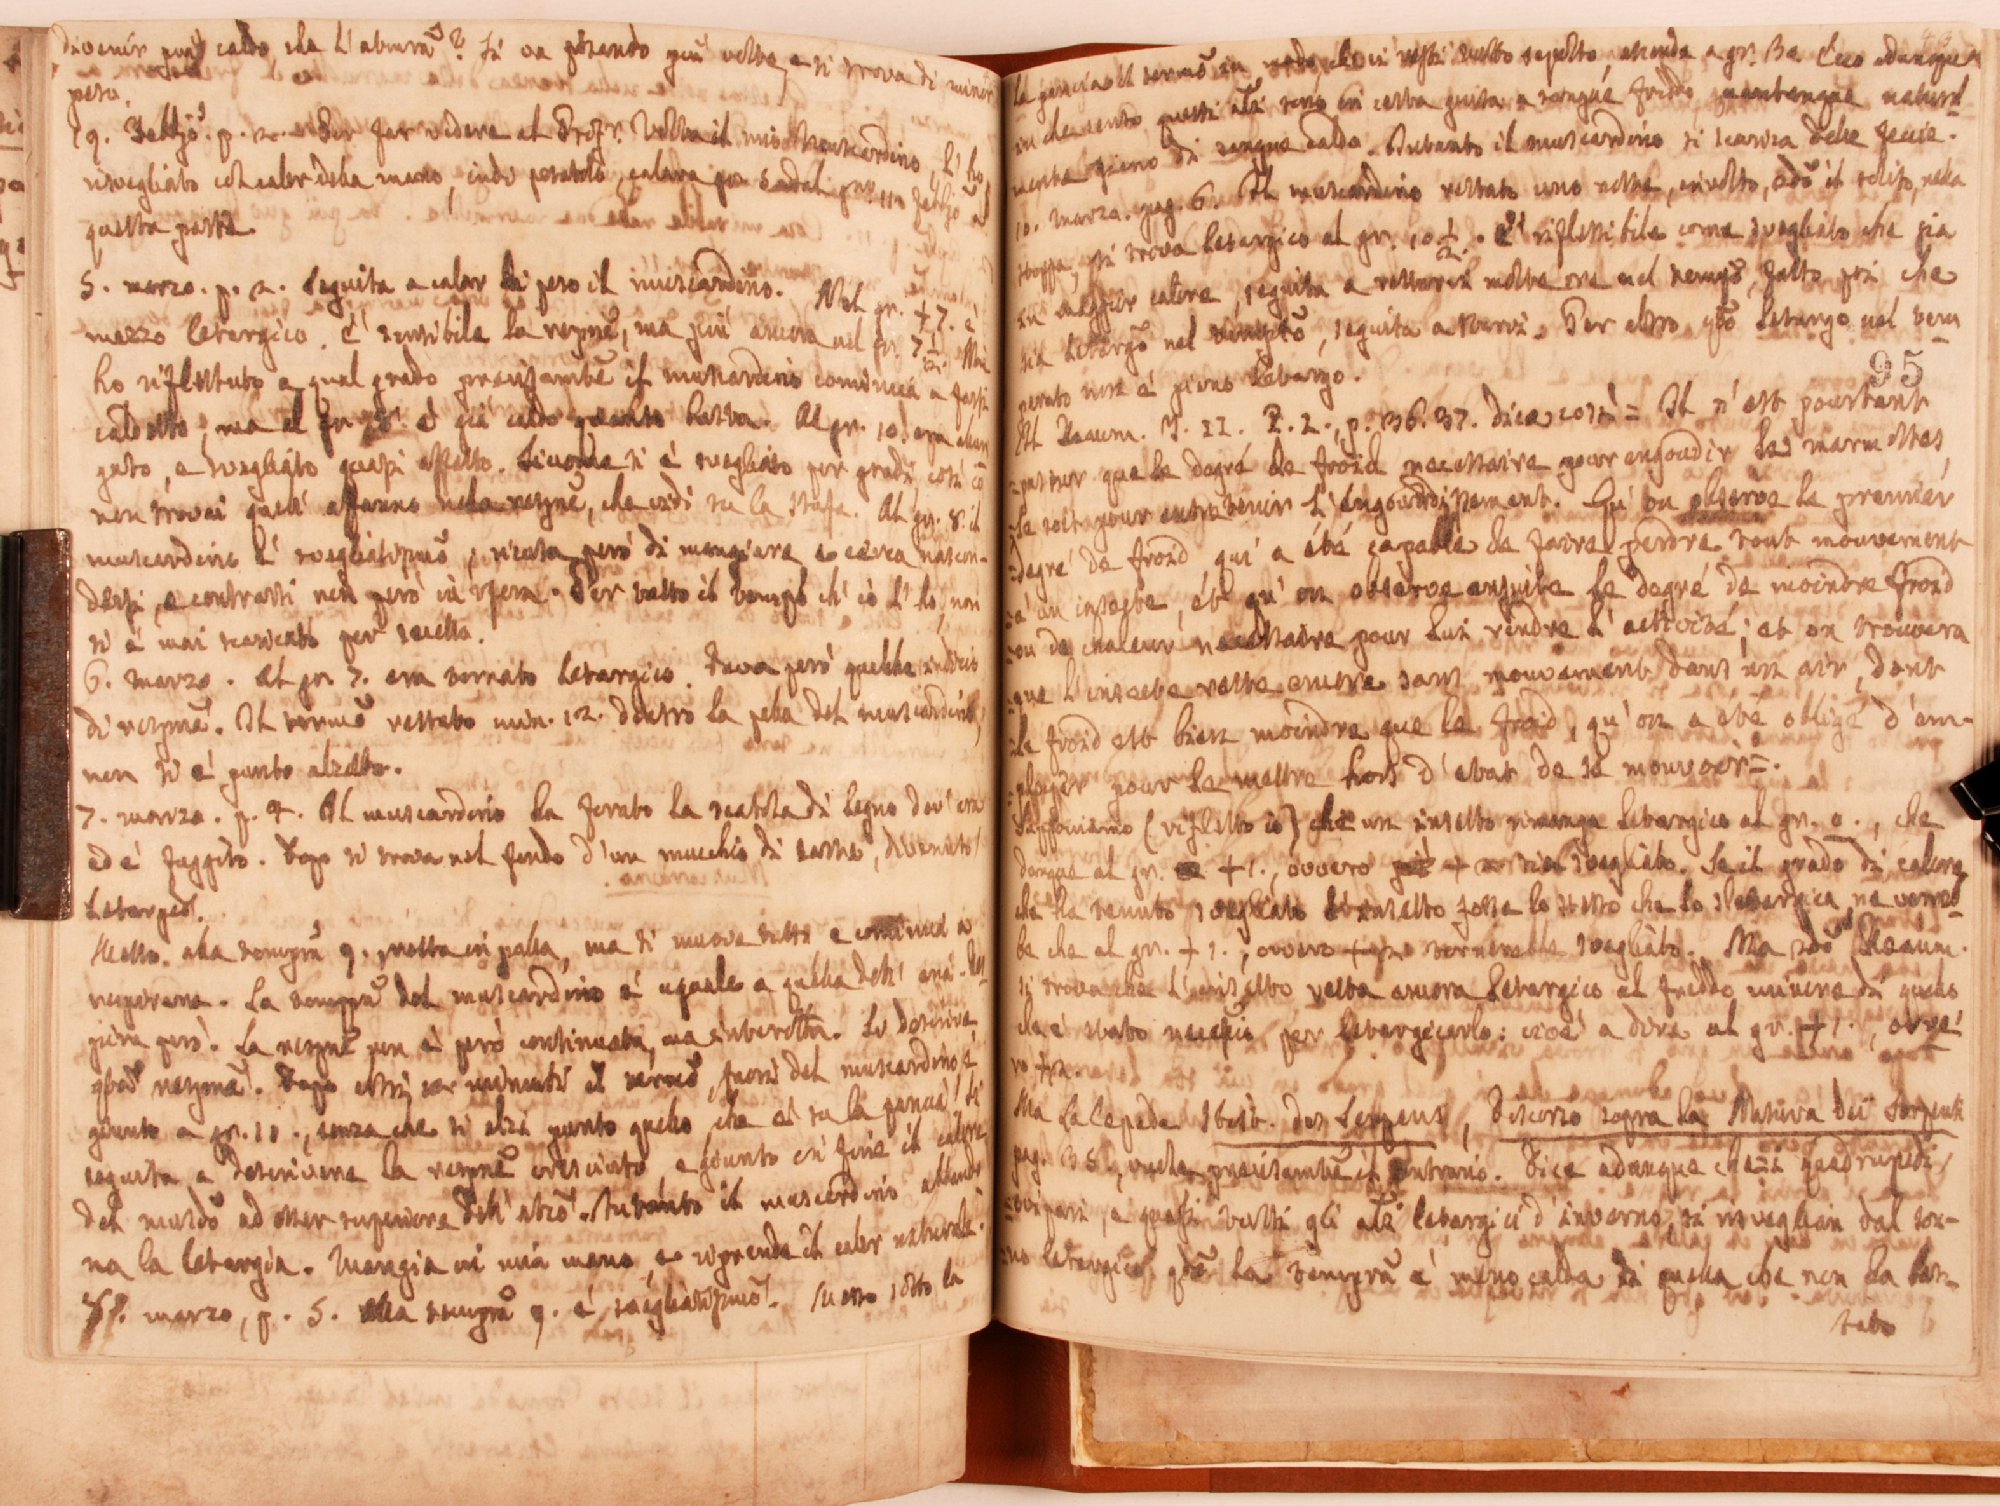 divenir più caldo che l'atmosfã? Si va pesando più volte, e si trova di minor
peso.
19. Febbjo. p. 2. Per far vedere al Profr. Volta il mio muscardino, l'ho
risvegliato col calor della mano, indi pesatolo, calava
questa parte.
5. marzo. p. 2. Seguita a calar di peso il muscardino. Nel gr. +7. è
mezzo letargico. E' sensibile la respnẽ, ma più ancora nel gr. 7 1/2. Mai
ho riflettuto a qual grado precisamẽte il muscardino comincia a farsi
caldetto, ma al gr. è già caldo quanto basta. Al gr. 10. era
gato, e svegliato quasi affatto. Siccome si è svegliato per gradi, così
non trovai quell'affanno nella respnẽ, che vidi su la stufa. Al gr. 8. il
muscardino è svegliatissimo, ricusa però di mangiare, e cerca nascon-
dersi, e contrarsi non però in sfera. Per tutto il tempo ch'io l'ho, non
si è mai scaricato per secesso.
6. marzo. Al gr. 7. era tornato letargico. Dava però qualche indizio
di respnẽ. Il termõ restato min. 12. dentro la palla del muscardino,
non si è punto alzato.
7. marzo. p. 4. Il muscardino ha forato la scatola di legno dov'era
ed è fuggito. Dopo si trova nel fondo d'un mucchio di carte, divenuto
letargico.
Messo alla tempra 9., resta in palla, ma si muove tutto e continua a
respirare. La tempra del muscardino è uguale a quella dell'aria.
giera però. La respnẽ non è però continuata, ma interrotta. Si descrive
respnẽ. Dopo altri minuti il termõ, fuori del muscardino è
giunto a gr. 11., senza che si alzi punto quello, che è su la pancia. Si
seguita a descrivere la respnẽ cresciuta, e giunto in fine il calore
del muscdõ ad esser superiore dell'atmõ. Intanto il muscardino abbando
na la letargia. Mangia in mia mano, e riprende il calor naturale.
8. marzo, p. 5. Alla tempra 9. è svegliatissimo. Messo sotto la
la pancia il termõ in modo che vi resti tutto sepolto, ascende a gr. 32. Ecco adunque
in che senso questi ali sono in certa guisa a sangue freddo, quantunque natural
mente sieno di sangue caldo. Intanto il muscardino si scarica delle feccie.
10. marzo. pag. 6. Il muscardino restato una notte, involto, al solito, nella
stoppa, si trova letargico al gr. 10 1/2. E' riflessibile come svegliato che sia
in maggior calore, seguita a restarci molte ore nel tempo, fatto poi che
sia letargõ nel tempo, seguita a starvi. Per altro questo letargo nel tem
perato non è pieno letargo.
95
Il Reaum. T. II. P. 2., p. 36. 37. dice così = Il n'est pourtant
= pas sur que le degré de froid necessaire pour engourdir les marmottes,
= le soit pour entretenir l'engourdissement. Qu'on observe le premier
= degré de froid qui a été capable de faire perdre tout mouvement
= a un insecte, et qu'on observe ensuite le degré de moindre froid
= ou de chaleur necessaire pour lui rendre l'activité; et on trouvera
= que l'insecte reste encore sans mouvement dans un air, dont
= le froid est bien moindre que le froid, qu'on a été obligé d'em-
= ployer pour le mettre hors d'etat de se mouvoir =.
Supponiamo (rifletto io) che un insetto rimanga letargico al gr. 0., che
dunque al gr. +1., ovvero + sia svegliato. Se il grado di calore
che ha tenuto svegliato l'insetto fosse lo stesso che lo sletargica, ne verreb-
be che al gr. +1., ovvero +2 tornerebbe svegliato. Ma secõ Reaum.
si trova che l'insetto resta ancora letargico al freddo minore di quello
che è stato necessario per letargicarlo: cioè a dire al gr. +1., ovve
ro +2.
Ma La Cepede Ist. des Serpens, Discorso sopra la Natura dei Serpenti
pag. 35, vuole precisamẽte il contrario. Dice adunque che i quadrupedi
= ovipari, e quasi tutti gli ali letargici d'inverno, si risveglian dal son-
= no letargico, quando la tempra è meno calda di quella che non ha bas-
tato